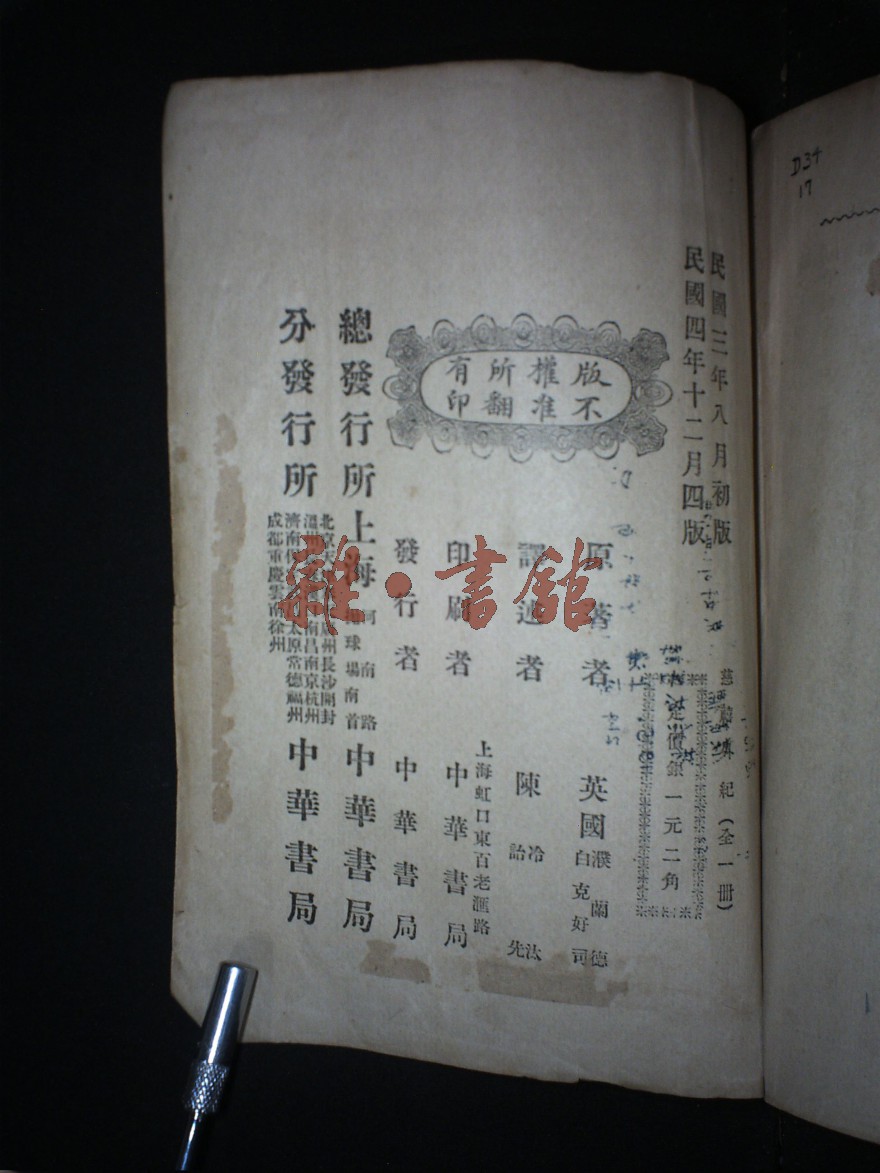 民國三年八月初版
民國四年十二月四版
紀(全一冊)
定價銀一元二角
版權所有
不准翻印
原著者 英國 濮蘭德
白克好司
譯述者 陳 冷汰
詒先
印刷者 上海虹口東百老滙路
中華書局
發行者 中華書局
總發行所 上海 河南路
球場南首
中華書局
分發行所
州長沙開封
南昌南京杭州
太原常德福州
成都重慶雲南徐州
中華書局
雜·書館
D34
17